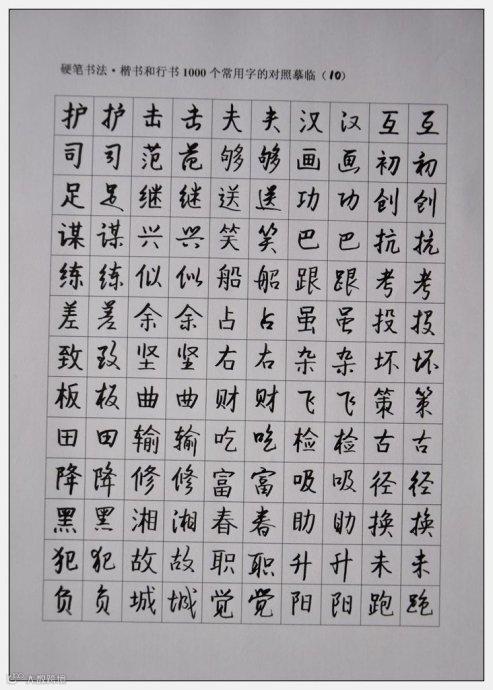 硬笔书法·楷书和行书1000个常用字的对照摹临（10）
护护击击夫夫汉汉互互
司司范范够够画画初初
足足继继送送功功创创
谋谋兴兴笑笑巴巴抗抗
练练似似船船跟跟考考
差差余余占占虽虽投投
致致坚坚右右杂杂坏坏
板板曲曲财财飞飞策策
田田输输吃吃检检古古
降降修修富富吸吸径径
黑黑湘湘春春助助换换
犯犯故故职职升升未未
负负城城觉觉阳阳跑跑